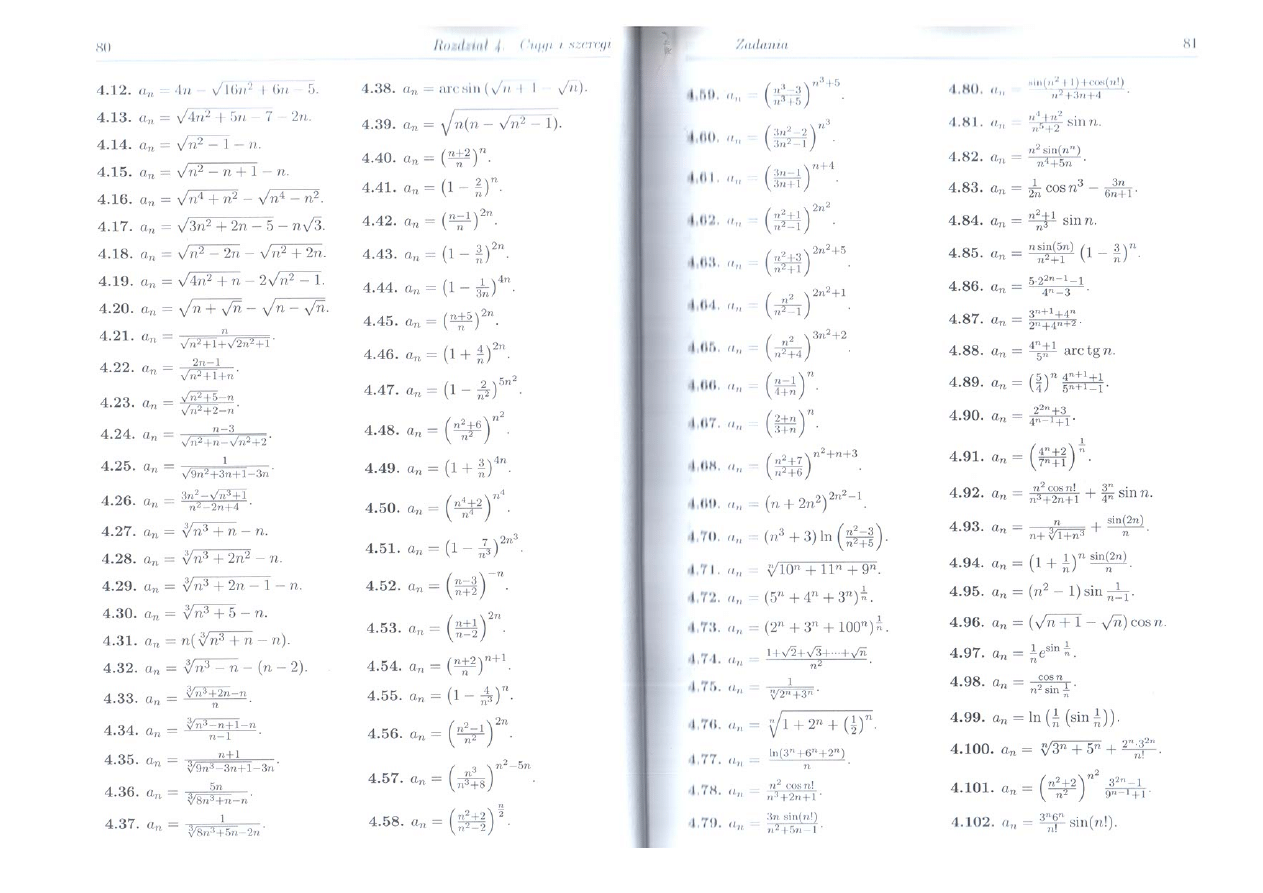 80 Rozdział 4. Ciągi i szeregi
4.12. aₙ = 4n − √(16n² + 6n − 5).
4.13. aₙ = √(4n² + 5n − 7) − 2n.
4.14. aₙ = √(n² − 1) − n.
4.15. aₙ = √(n² − n + 1) − n.
4.16. aₙ = √(n⁴ + n²) − √(n⁴ − n²).
4.17. aₙ = √(3n² + 2n − 5) − n√3.
4.18. aₙ = √(n² − 2n) − √(n² + 2n).
4.19. aₙ = √(4n² + n) − 2√(n² − 1).
4.20. aₙ = √(n + √n) − √(n − √n).
4.21. aₙ = n/(√(n²+1)+√(2n²+1)).
4.22. aₙ = (2n−1)/(√(n²+1)+n).
4.23. aₙ = (√(n²+5)−n)/(√(n²+2)−n).
4.24. aₙ = (n−3)/(√(n²+n)−√(n²+2)).
4.25. aₙ = 1/(√(9n²+3n+1)−3n).
4.26. aₙ = (3n²−√(n³+1))/(n²−2n+4).
4.27. aₙ = ∛(n³ + n) − n.
4.28. aₙ = ∛(n³ + 2n²) − n.
4.29. aₙ = ∛(n³ + 2n − 1) − n.
4.30. aₙ = ∛(n³ + 5) − n.
4.31. aₙ = n(∛(n³ + n) − n).
4.32. aₙ = ∛(n³ − n) − (n − 2).
4.33. aₙ = (∛(n³+2n)−n)/n.
4.34. aₙ = (∛(n³−n+1)−n)/(n−1).
4.35. aₙ = (n+1)/(∛(9n³−3n+1)−3n).
4.36. aₙ = 5n/(∛(8n³+n)−n).
4.37. aₙ = 1/(∛(8n³+5n)−2n).
4.38. aₙ = arc sin (√(n + 1) − √n).
4.39. aₙ = √(n(n − √(n² − 1))).
4.40. aₙ = ((n+2)/n)ⁿ.
4.41. aₙ = (1 − 2/n)ⁿ.
4.42. aₙ = ((n−1)/n)²ⁿ.
4.43. aₙ = (1 − 3/n)²ⁿ.
4.44. aₙ = (1 − 1/(3n))⁴ⁿ.
4.45. aₙ = ((n+5)/n)²ⁿ.
4.46. aₙ = (1 + 4/n)²ⁿ.
4.47. aₙ = (1 − 2/n²)^(5n²).
4.48. aₙ = ((n²+6)/n²)^(n²).
4.49. aₙ = (1 + 3/n)⁴ⁿ.
4.50. aₙ = ((n⁴+2)/n⁴)^(n⁴).
4.51. aₙ = (1 − 7/n³)^(2n³).
4.52. aₙ = ((n−3)/(n+2))⁻ⁿ.
4.53. aₙ = ((n+1)/(n−2))²ⁿ.
4.54. aₙ = ((n+2)/n)ⁿ⁺¹.
4.55. aₙ = (1 − 4/n³)ⁿ.
4.56. aₙ = ((n²−1)/n²)²ⁿ.
4.57. aₙ = (n³/(n³+8))^(n²−5n).
4.58. aₙ = ((n²+2)/(n²−2))^(n/2).
Zadania 81
4.59. aₙ = ((n³−3)/(n³+5))^(n³+5).
4.60. aₙ = ((3n²−2)/(3n²−1))^(n³).
4.61. aₙ = ((3n−1)/(3n+1))ⁿ⁺⁴.
4.62. aₙ = ((n²+1)/(n²−1))^(2n²).
4.63. aₙ = ((n²+3)/(n²+1))^(2n²+5).
4.64. aₙ = (n²/(n²−1))^(2n²+1).
4.65. aₙ = (n²/(n²+4))^(3n²+2).
4.66. aₙ = ((n−1)/(4+n))ⁿ.
4.67. aₙ = ((2+n)/(3+n))ⁿ.
4.68. aₙ = ((n²+7)/(n²+6))^(n²+n+3).
4.69. aₙ = (n + 2n²)^(2n²−1).
4.70. aₙ = (n³ + 3) ln ((n²−3)/(n²+5)).
4.71. aₙ = ⁿ√(10ⁿ + 11ⁿ + 9ⁿ).
4.72. aₙ = (5ⁿ + 4ⁿ + 3ⁿ)^(1/n).
4.73. aₙ = (2ⁿ + 3ⁿ + 100ⁿ)^(1/n).
4.74. aₙ = (1+√2+√3+···+√n)/n².
4.75. aₙ = 1/ⁿ√(2ⁿ+3ⁿ).
4.76. aₙ = ⁿ√(1 + 2ⁿ + (1/2)ⁿ).
4.77. aₙ = ln(3ⁿ+6ⁿ+2ⁿ)/n.
4.78. aₙ = n² cos n!/(n³+2n+1).
4.79. aₙ = 3n sin(n!)/(n²+5n−1).
4.80. aₙ = (sin(n²+1)+cos(n!))/(n²+3n+4).
4.81. aₙ = (n⁴+n²)/(n⁵+2) sin n.
4.82. aₙ = n² sin(nⁿ)/(n⁴+5n).
4.83. aₙ = 1/(2n) cos n³ − 3n/(6n+1).
4.84. aₙ = (n²+1)/n³ sin n.
4.85. aₙ = n sin(5n)/(n²+1) (1 − 3/n)ⁿ.
4.86. aₙ = (5·2²ⁿ⁻¹−1)/(4ⁿ−3).
4.87. aₙ = (3ⁿ⁺¹+4ⁿ)/(2ⁿ+4ⁿ⁺²).
4.88. aₙ = (4ⁿ+1)/5ⁿ arc tg n.
4.89. aₙ = (5/4)ⁿ (4ⁿ⁺¹+1)/(5ⁿ⁺¹−1).
4.90. aₙ = (2²ⁿ+3)/(4ⁿ⁻¹+1).
4.91. aₙ = ((4ⁿ+2)/(7ⁿ+1))^(1/n).
4.92. aₙ = n² cos n!/(n³+2n+1) + 3ⁿ/4ⁿ sin n.
4.93. aₙ = n/(n+∛(1+n³)) + sin(2n)/n.
4.94. aₙ = (1 + 1/n)ⁿ sin(2n)/n.
4.95. aₙ = (n² − 1) sin 1/(n−1).
4.96. aₙ = (√(n + 1) − √n) cos n.
4.97. aₙ = 1/n e^(sin 1/n).
4.98. aₙ = cos n/(n² sin 1/n).
4.99. aₙ = ln (1/n (sin 1/n)).
4.100. aₙ = ⁿ√(3ⁿ + 5ⁿ) + 2ⁿ·3²ⁿ/n!.
4.101. aₙ = ((n²+2)/n²)^(n²) (3²ⁿ−1)/(9ⁿ⁻¹+1).
4.102. aₙ = 3ⁿ6ⁿ/n! sin(n!).